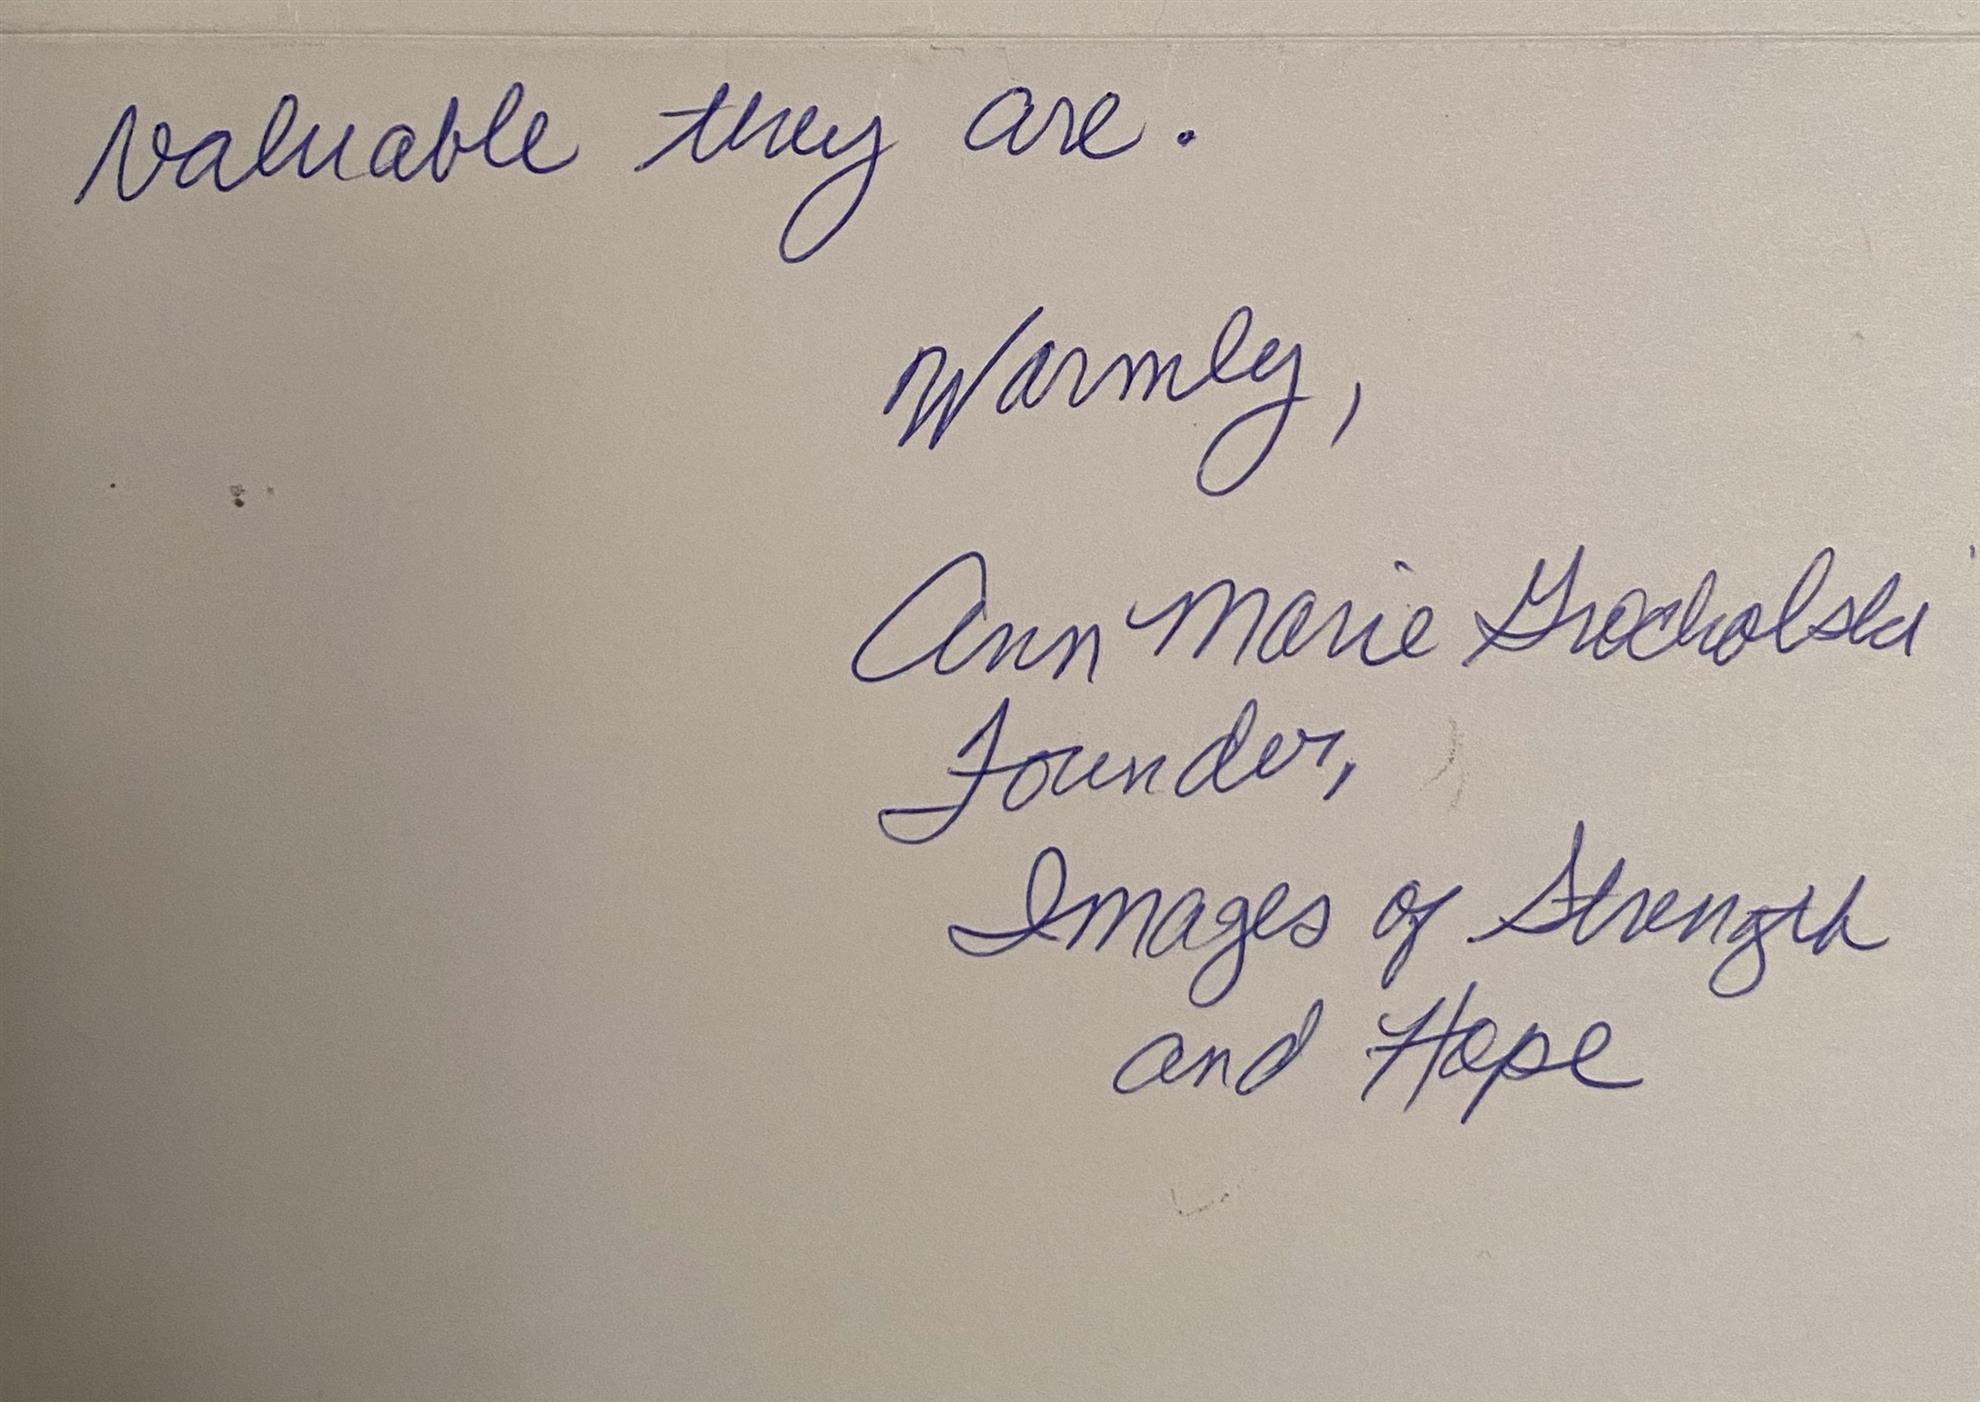 valuable they are.
Warmly,
Ann Marie Grocholski
Founder,
Images of Strength
and Hope